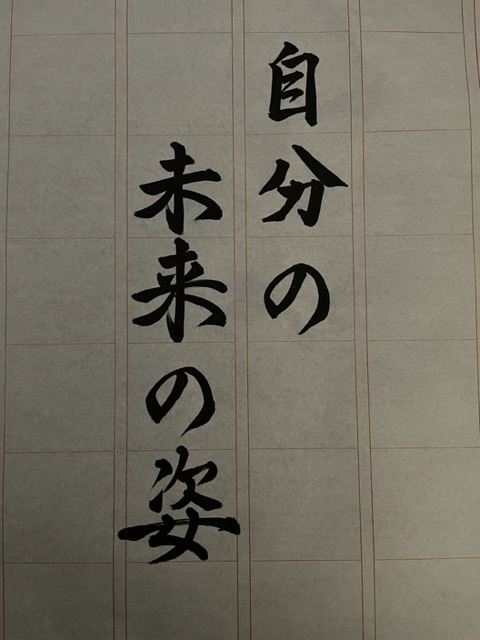 自分の
未来の姿